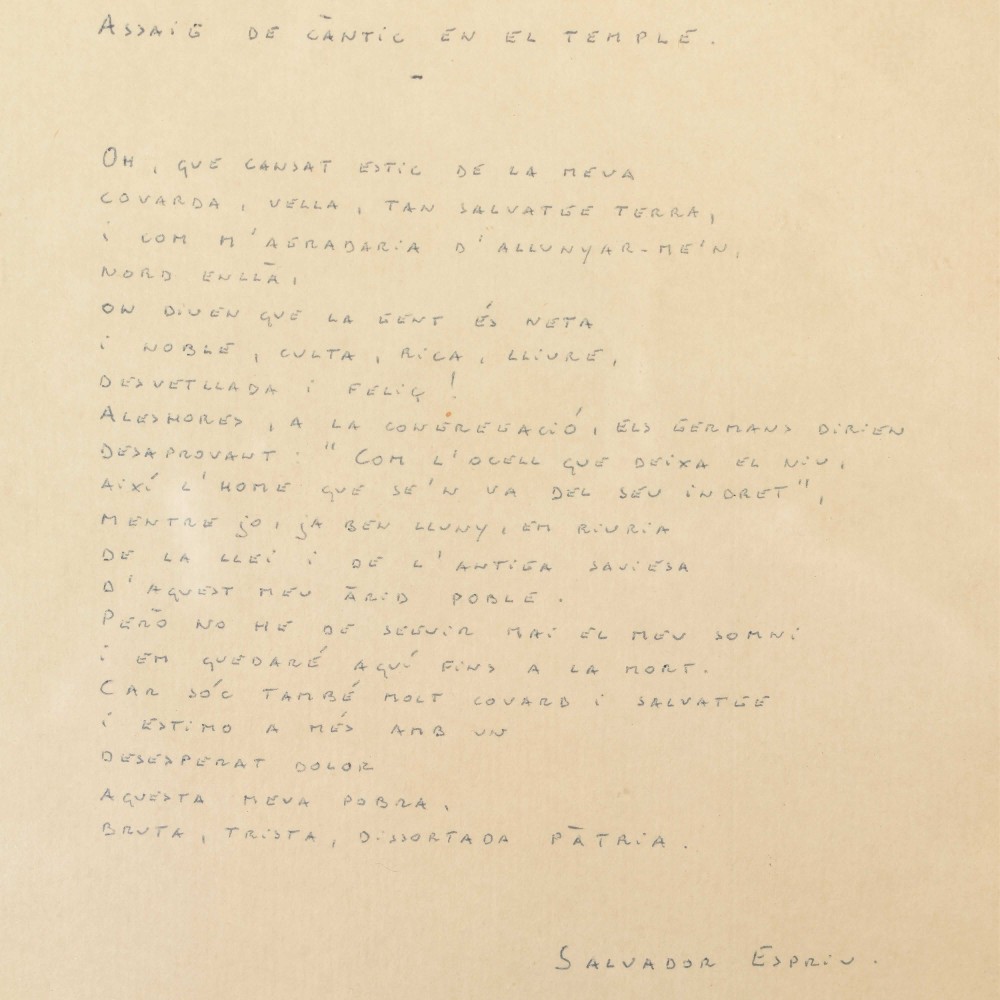 Assaig de càntic en el temple.
-
Oh, que cansat estic de la meva
covarda, vella, tan salvatge terra,
i com m'agradaria d'allunyar-me'n,
nord enllà,
on diuen que la gent és neta
i noble, culta, rica, lliure,
desvetllada i feliç!
Aleshores, a la congregació, els germans dirien
desaprovant: "Com l'ocell que deixa el niu,
així l'home que se'n va del seu indret",
mentre jo, ja ben lluny, em riuria
de la llei i de l'antiga saviesa
d'aquest meu àrid poble.
Però no he de seguir mai el meu somni
i em quedaré aquí fins a la mort.
Car sóc també molt covard i salvatge
i estimo a més amb un
desesperat dolor
aquesta meva pobra,
bruta, trista, dissortada pàtria.
Salvador Espriu.